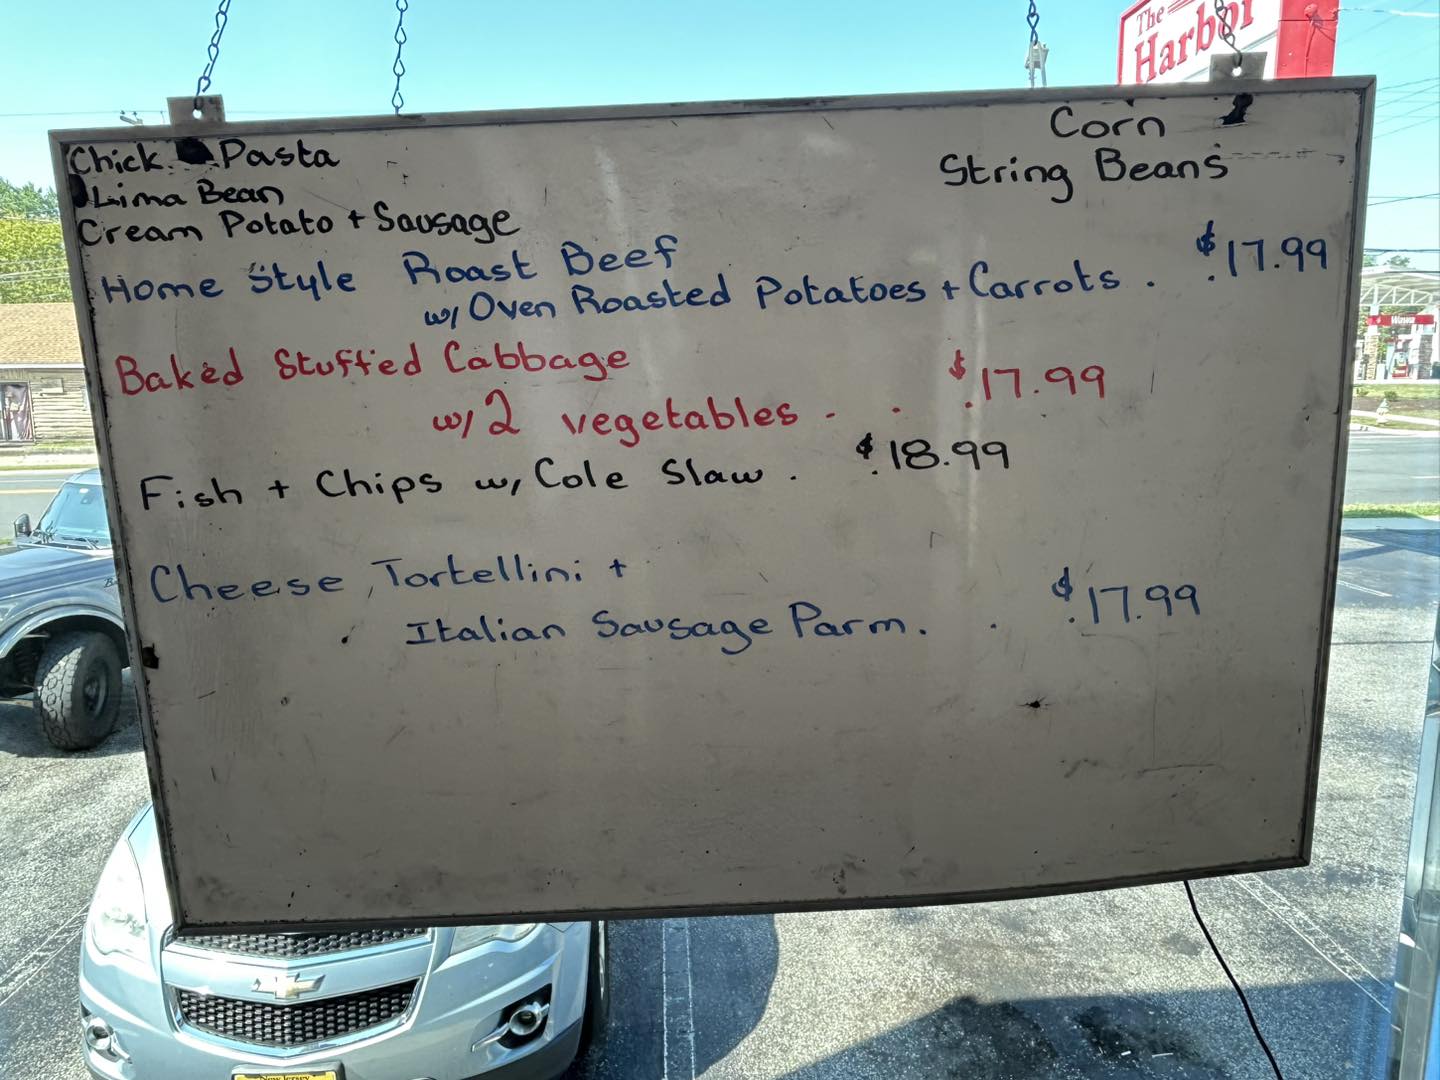 The
Harbor
Corn
String Beans
Chick. Pasta
Lima Bean
Cream Potato + Sausage
Home Style Roast Beef
w/ Oven Roasted Potatoes + Carrots . . $17.99
Baked Stuffed Cabbage
w/ 2 vegetables . . . $17.99
Fish + Chips w/ Cole Slaw . . $18.99
Cheese Tortellini +
Italian Sausage Parm. . . $17.99
New Jersey